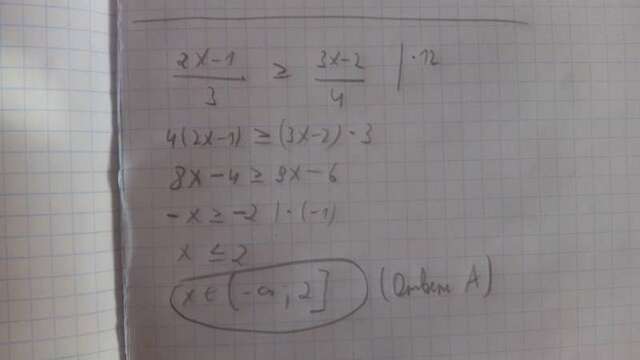 (2x-1)/3 ≥ (3x-2)/4 | · 12
4(2x-1) ≥ (3x-2) · 3
8x-4 ≥ 9x-6
-x ≥ -2 | · (-1)
x ≤ 2
x ∈ (-∞; 2] (Ответ A)